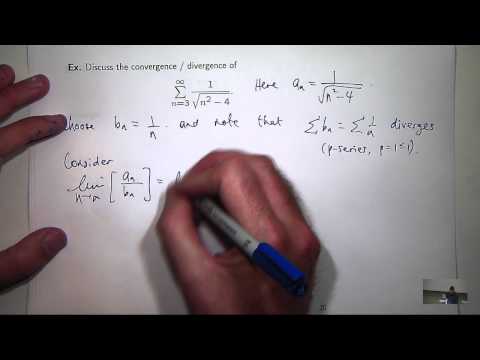 Ex. Discuss the convergence / divergence of
∞ ∑ n=3 1/√(n² − 4) . Here aₙ = 1/√(n²−4) .
Choose bₙ = 1/n . and note that ∑bₙ = ∑ 1/n diverges
(p-series, p=1≤1).
Consider
lim n→∞ [ aₙ/bₙ ] = l